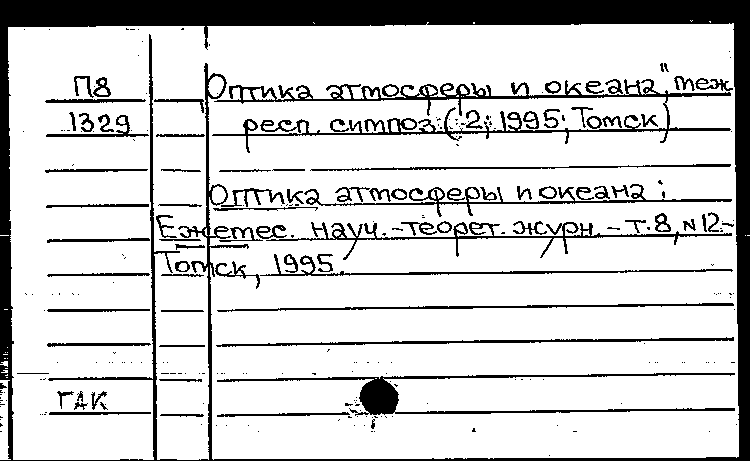 П8
1329
Оптика атмосферы и океана", меж
респ. симпоз. (2; 1995; Томск)
Оптика атмосферы и океана:
Ежемес. науч.-теорет. журн. - т.8, №12.-
Томск, 1995.
ГАК